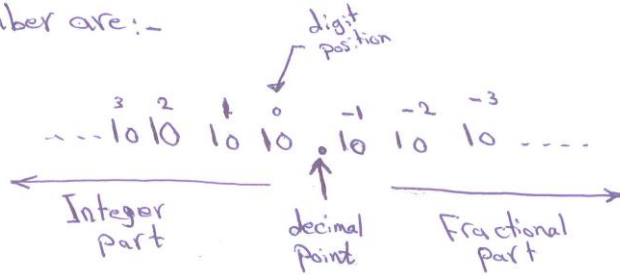 ber are:-
digit
position
....10³ 10² 10¹ 10⁰ . 10⁻¹ 10⁻² 10⁻³ ....
Integer
part
decimal
point
Fractional
part